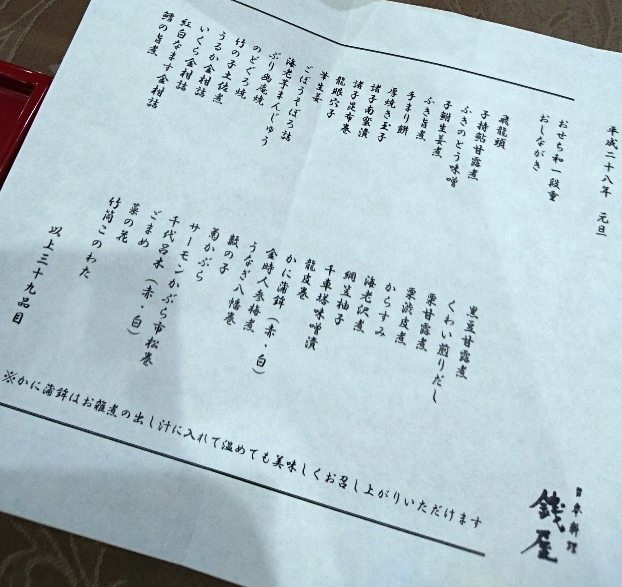 平成二十八年 元旦
おせち和一段重
おしながき
飛龍頭
子持鮎甘露煮
ふきのとう味噌
子鮒生姜煮
ふき旨煮
手まり餅
厚焼き玉子
諸子南蛮漬
諸子昆布巻
龍眼穴子
筆生姜
ごぼうそぼろ詰
海老芋まんじゅう
ぶり幽庵焼
のどぐろ焼
竹の子土佐煮
うるか金柑詰
いくら金柑詰
紅白なます金柑詰
鱈の旨煮
黒豆甘露煮
くわい煎りだし
栗甘露煮
栗渋皮煮
からすみ
海老沢煮
網笠柚子
千車塔味噌漬
龍皮巻
かに蒲鉾（赤・白）
金時人参梅煮
うなぎ八幡巻
数の子
菊かぶら
サーモンかぶら市松巻
千代呂木（赤・白）
ごまめ
菜の花
竹筒このわた
以上三十九品目
※かに蒲鉾はお雑煮の出し汁に入れて温めても美味しくお召し上がりいただけます
日本料理
銭屋